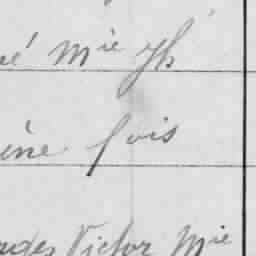 né Mie Jh
ène fois
udes Victor Mie